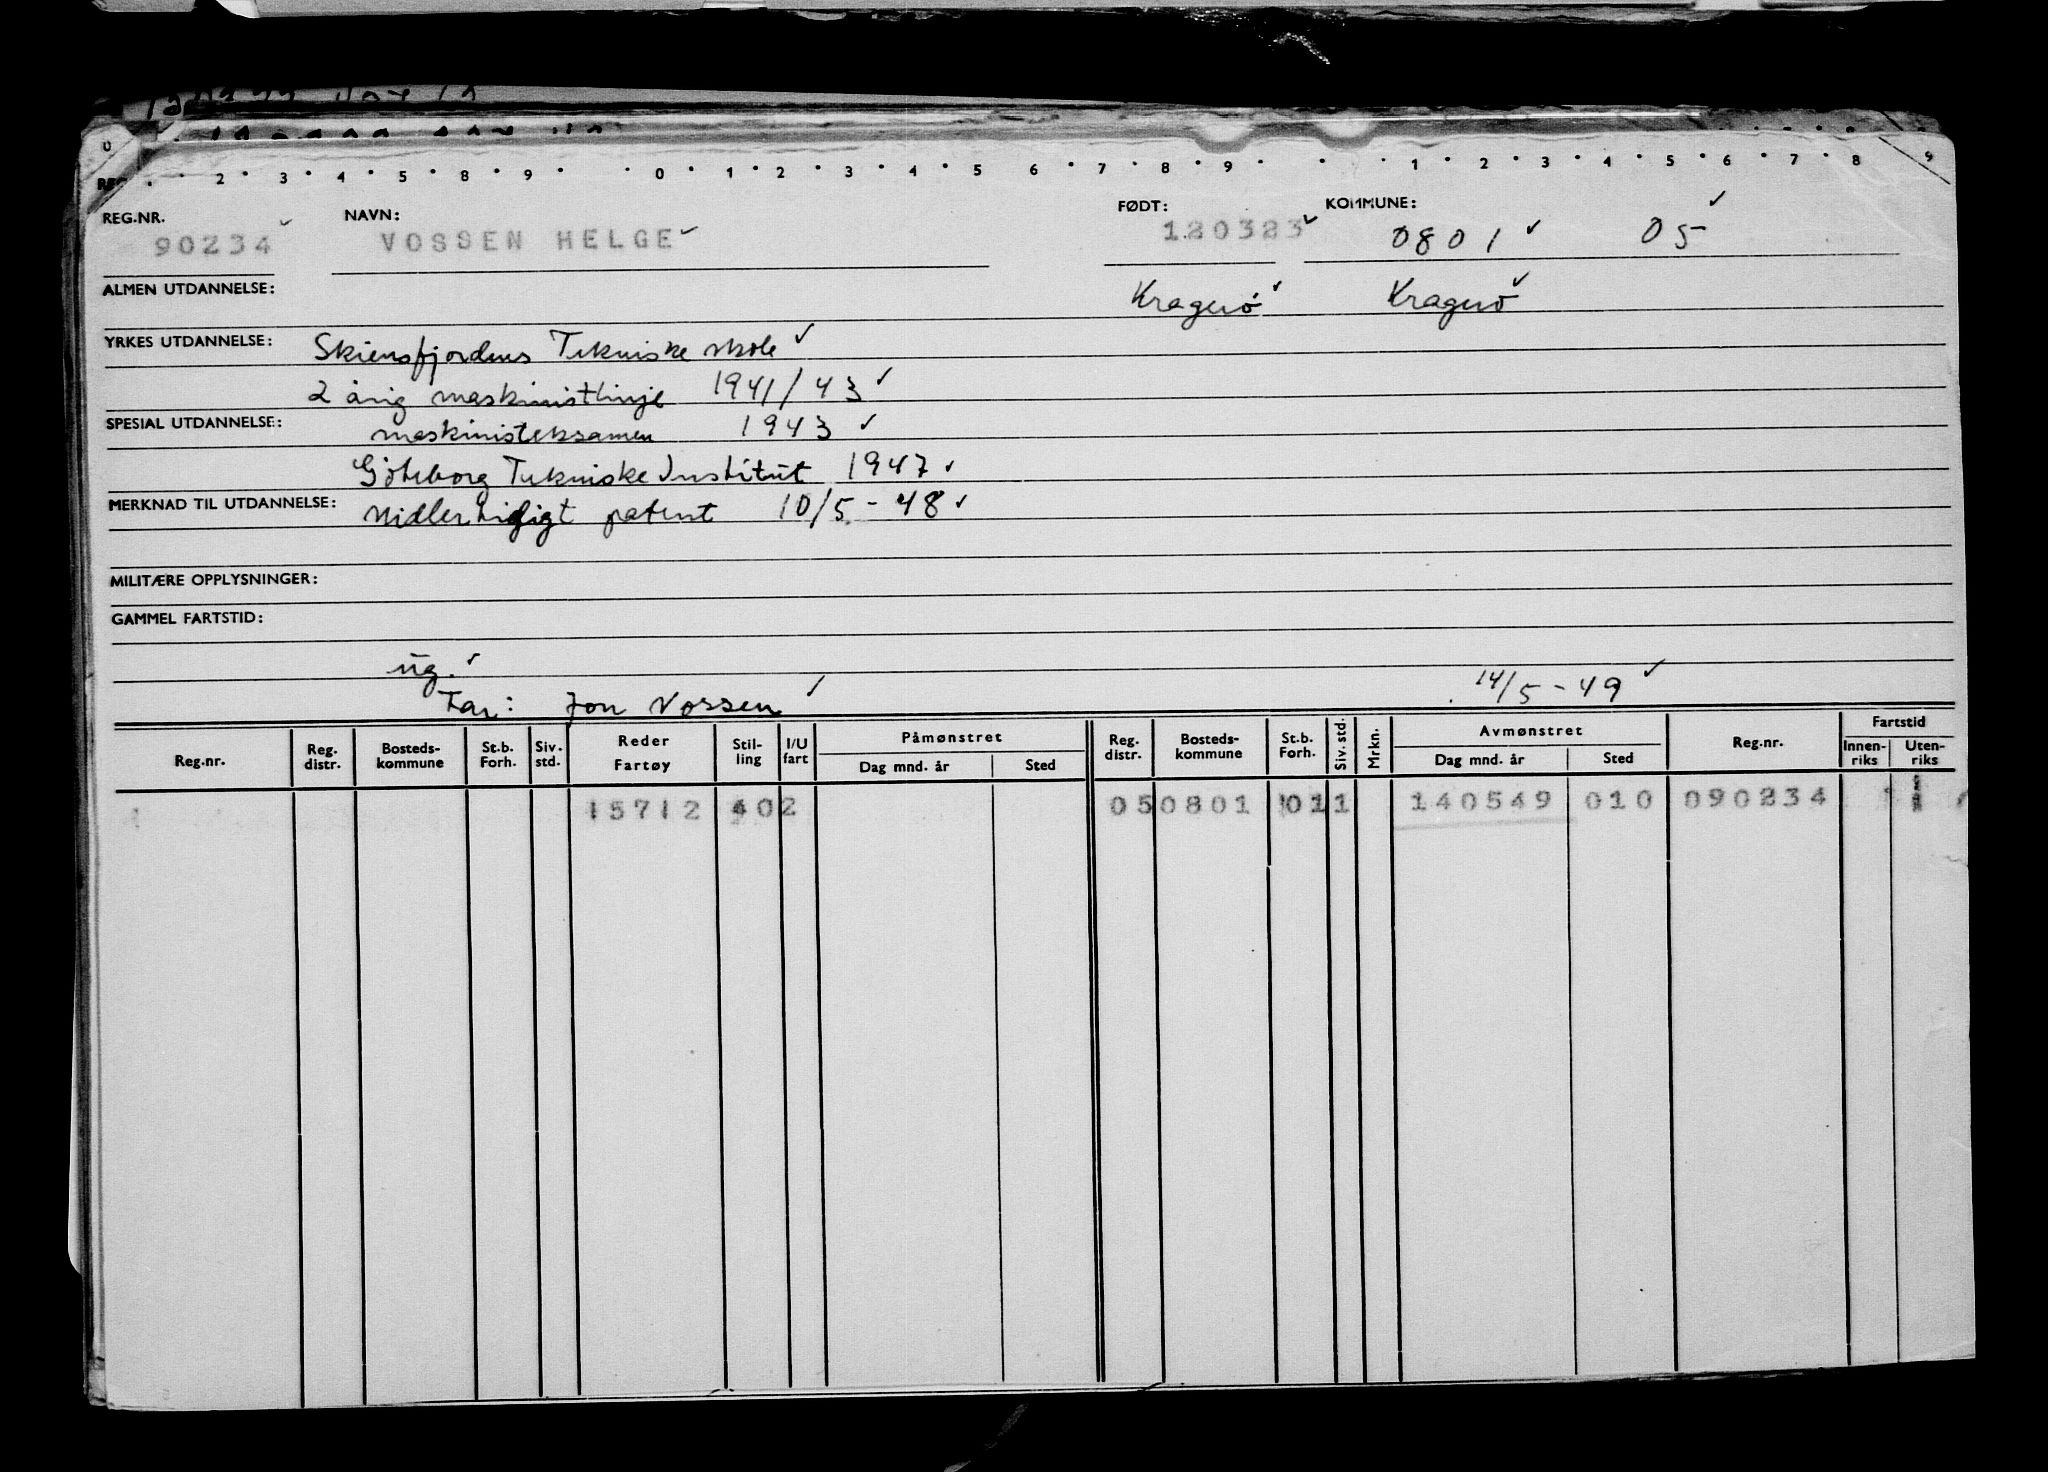 0
2 3 4 5 8 9 0 1 2 3 4 5 6 7 8 9 1 2 3 4 5 6 7 8 9
REG.NR. NAVN: FØDT: KOMMUNE:
90234 VOSSEN HELGE 120323 0801 05
ALMEN UTDANNELSE: Kragerö Kragerö
YRKES UTDANNELSE: Skiensfjordens Tekniske skole
2 årig maskinistlinje 1941/43
SPESIAL UTDANNELSE: maskinisteksamen 1943
Göteborg Tekniske Institut 1947
MERKNAD TIL UTDANNELSE: Midlertidigt patent 10/5-48
MILITÆRE OPPLYSNINGER:
GAMMEL FARTSTID:
ug.
Far: Jon Vossen 14/5-49
Reg.nr. Reg. distr. Bosteds-kommune St.b. Forh. Siv. std. Reder Fartøy Stil-ling I/U fart Påmønstret Dag mnd. år Sted Reg. distr. Bosteds-kommune St.b. Forh. Siv. std. Mrkn. Avmønstret Dag mnd. år Sted Reg.nr. Fartstid Innen-riks Uten-riks
15712 402 050801 011 140549 010 090234